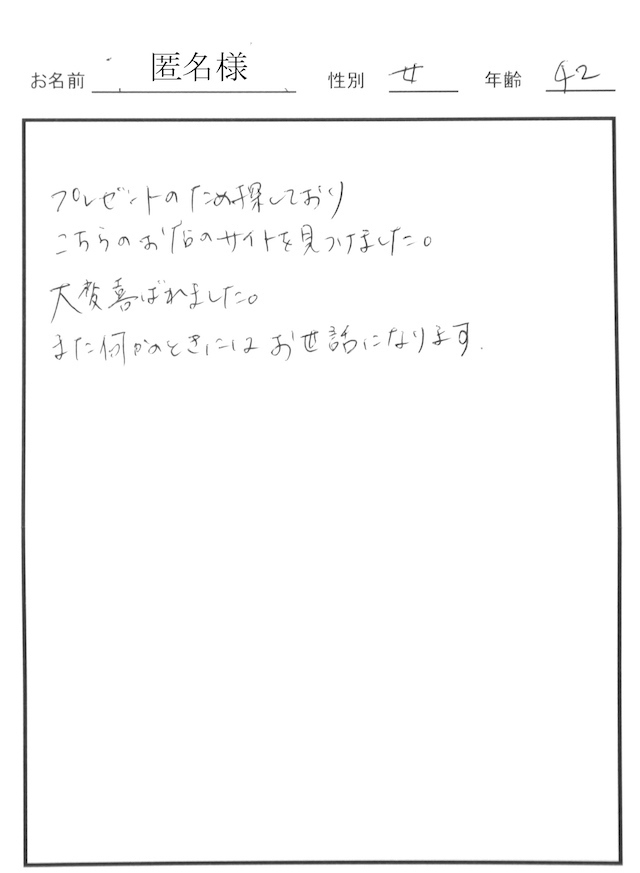 お名前 匿名様 性別 女 年齢 42
プレゼントのため探しており
こちらのお店のサイトを見つけました。
大変喜ばれました。
また何かのときにはお世話になります.